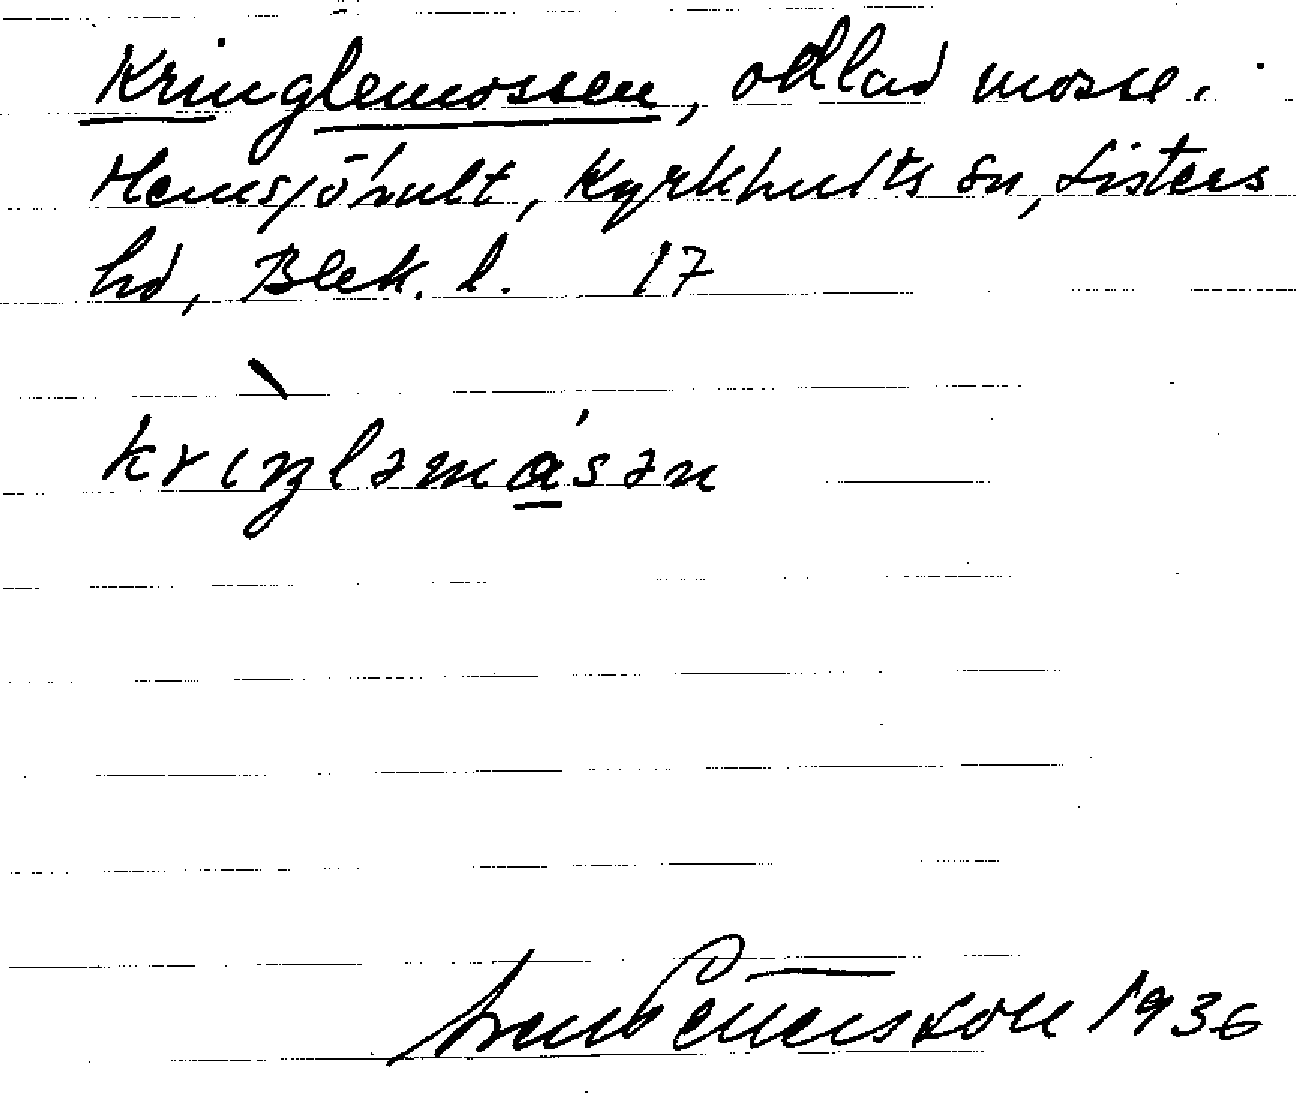 Kringlemossen, odlad mosse.
Hemsjöhult, Kyrkhults sn, Listers
hd, Blek. l. 17
krıŋləmásən
Pettersson 1936